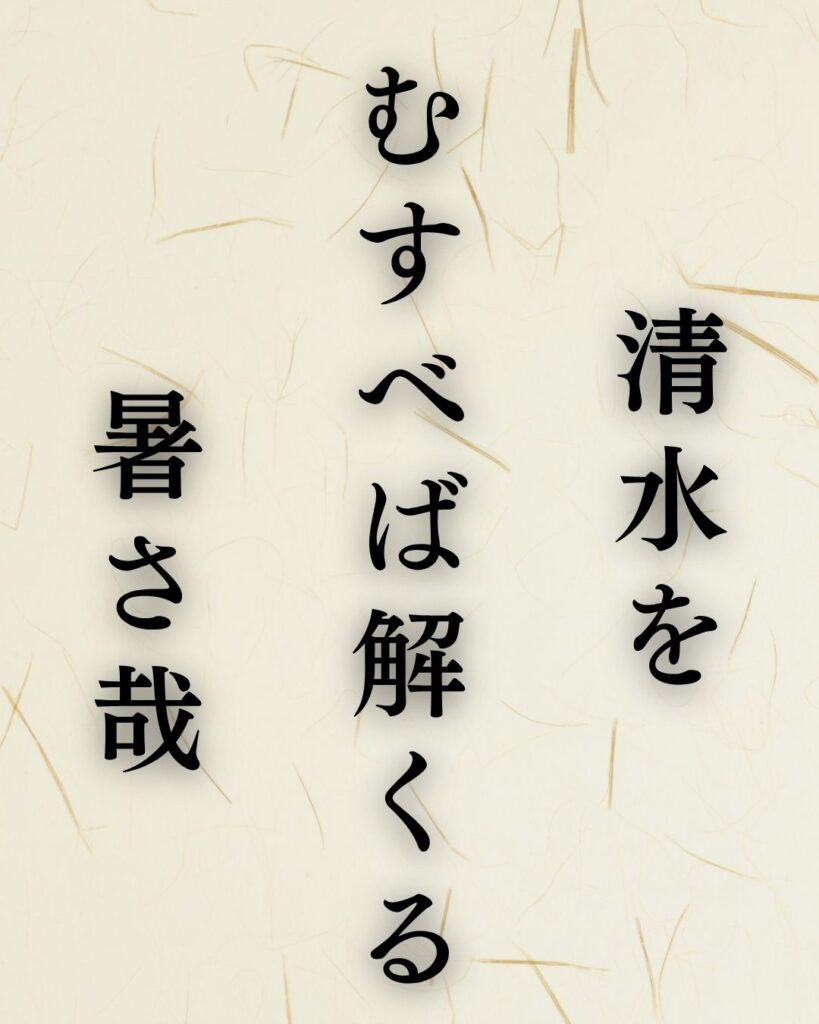 清水を
むすべば解くる
暑さ哉